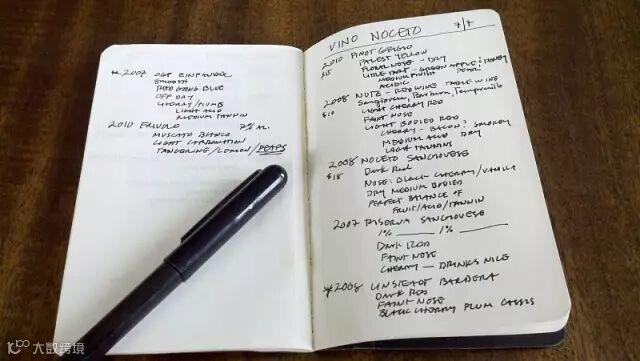 ** 2007 OGP ZINFANDEL
SMOOTH
RED GOING BLUE
OFF DRY
CHERRY/PLUMB
LIGHT ACID
MEDIUM TANNIN
2010 FRIVOLO 7% AL.
MUSCATO BIANCO
LIGHT CARBONATION
TANGERINE/LEMON/PEARS
VINO NOCETO 7/7
2010 PINOT GRIGIO
$15 PALEST YELLOW
FLORAL NOSE - DRY
LITTLE TART - GREEN APPLE & HONEY
MEDIUM FINISH PEAR
ACIDIC
2008 NUTZ - RED WINE TABLE WINE
Sangiovese, Barbera, Tempranillo
$10 LIGHT CHERRY RED
FAINT NOSE
LIGHT BODIED RED
CHERRY - BACON? SMOKEY
MEDIUM ACID DRY
LIGHT TANNINS
2008 NOCETO SANGIOVESE
$18 DARK RED
NOSE: BLACK CHERRY/VANILLA
DRY MEDIUM BODIED
PERFECT BALANCE OF
FRUIT/ACID/TANNIN
2007 RISERVA SANGIOVESE
1% ____ 1% ____
DARK RED
FAINT NOSE
CHERRY — DRINKS NICE
** 2008 LINSTEADT BARBERA
DARK RED
FAINT NOSE
BLACK CHERRY PLUM CASSIS
大数跨境